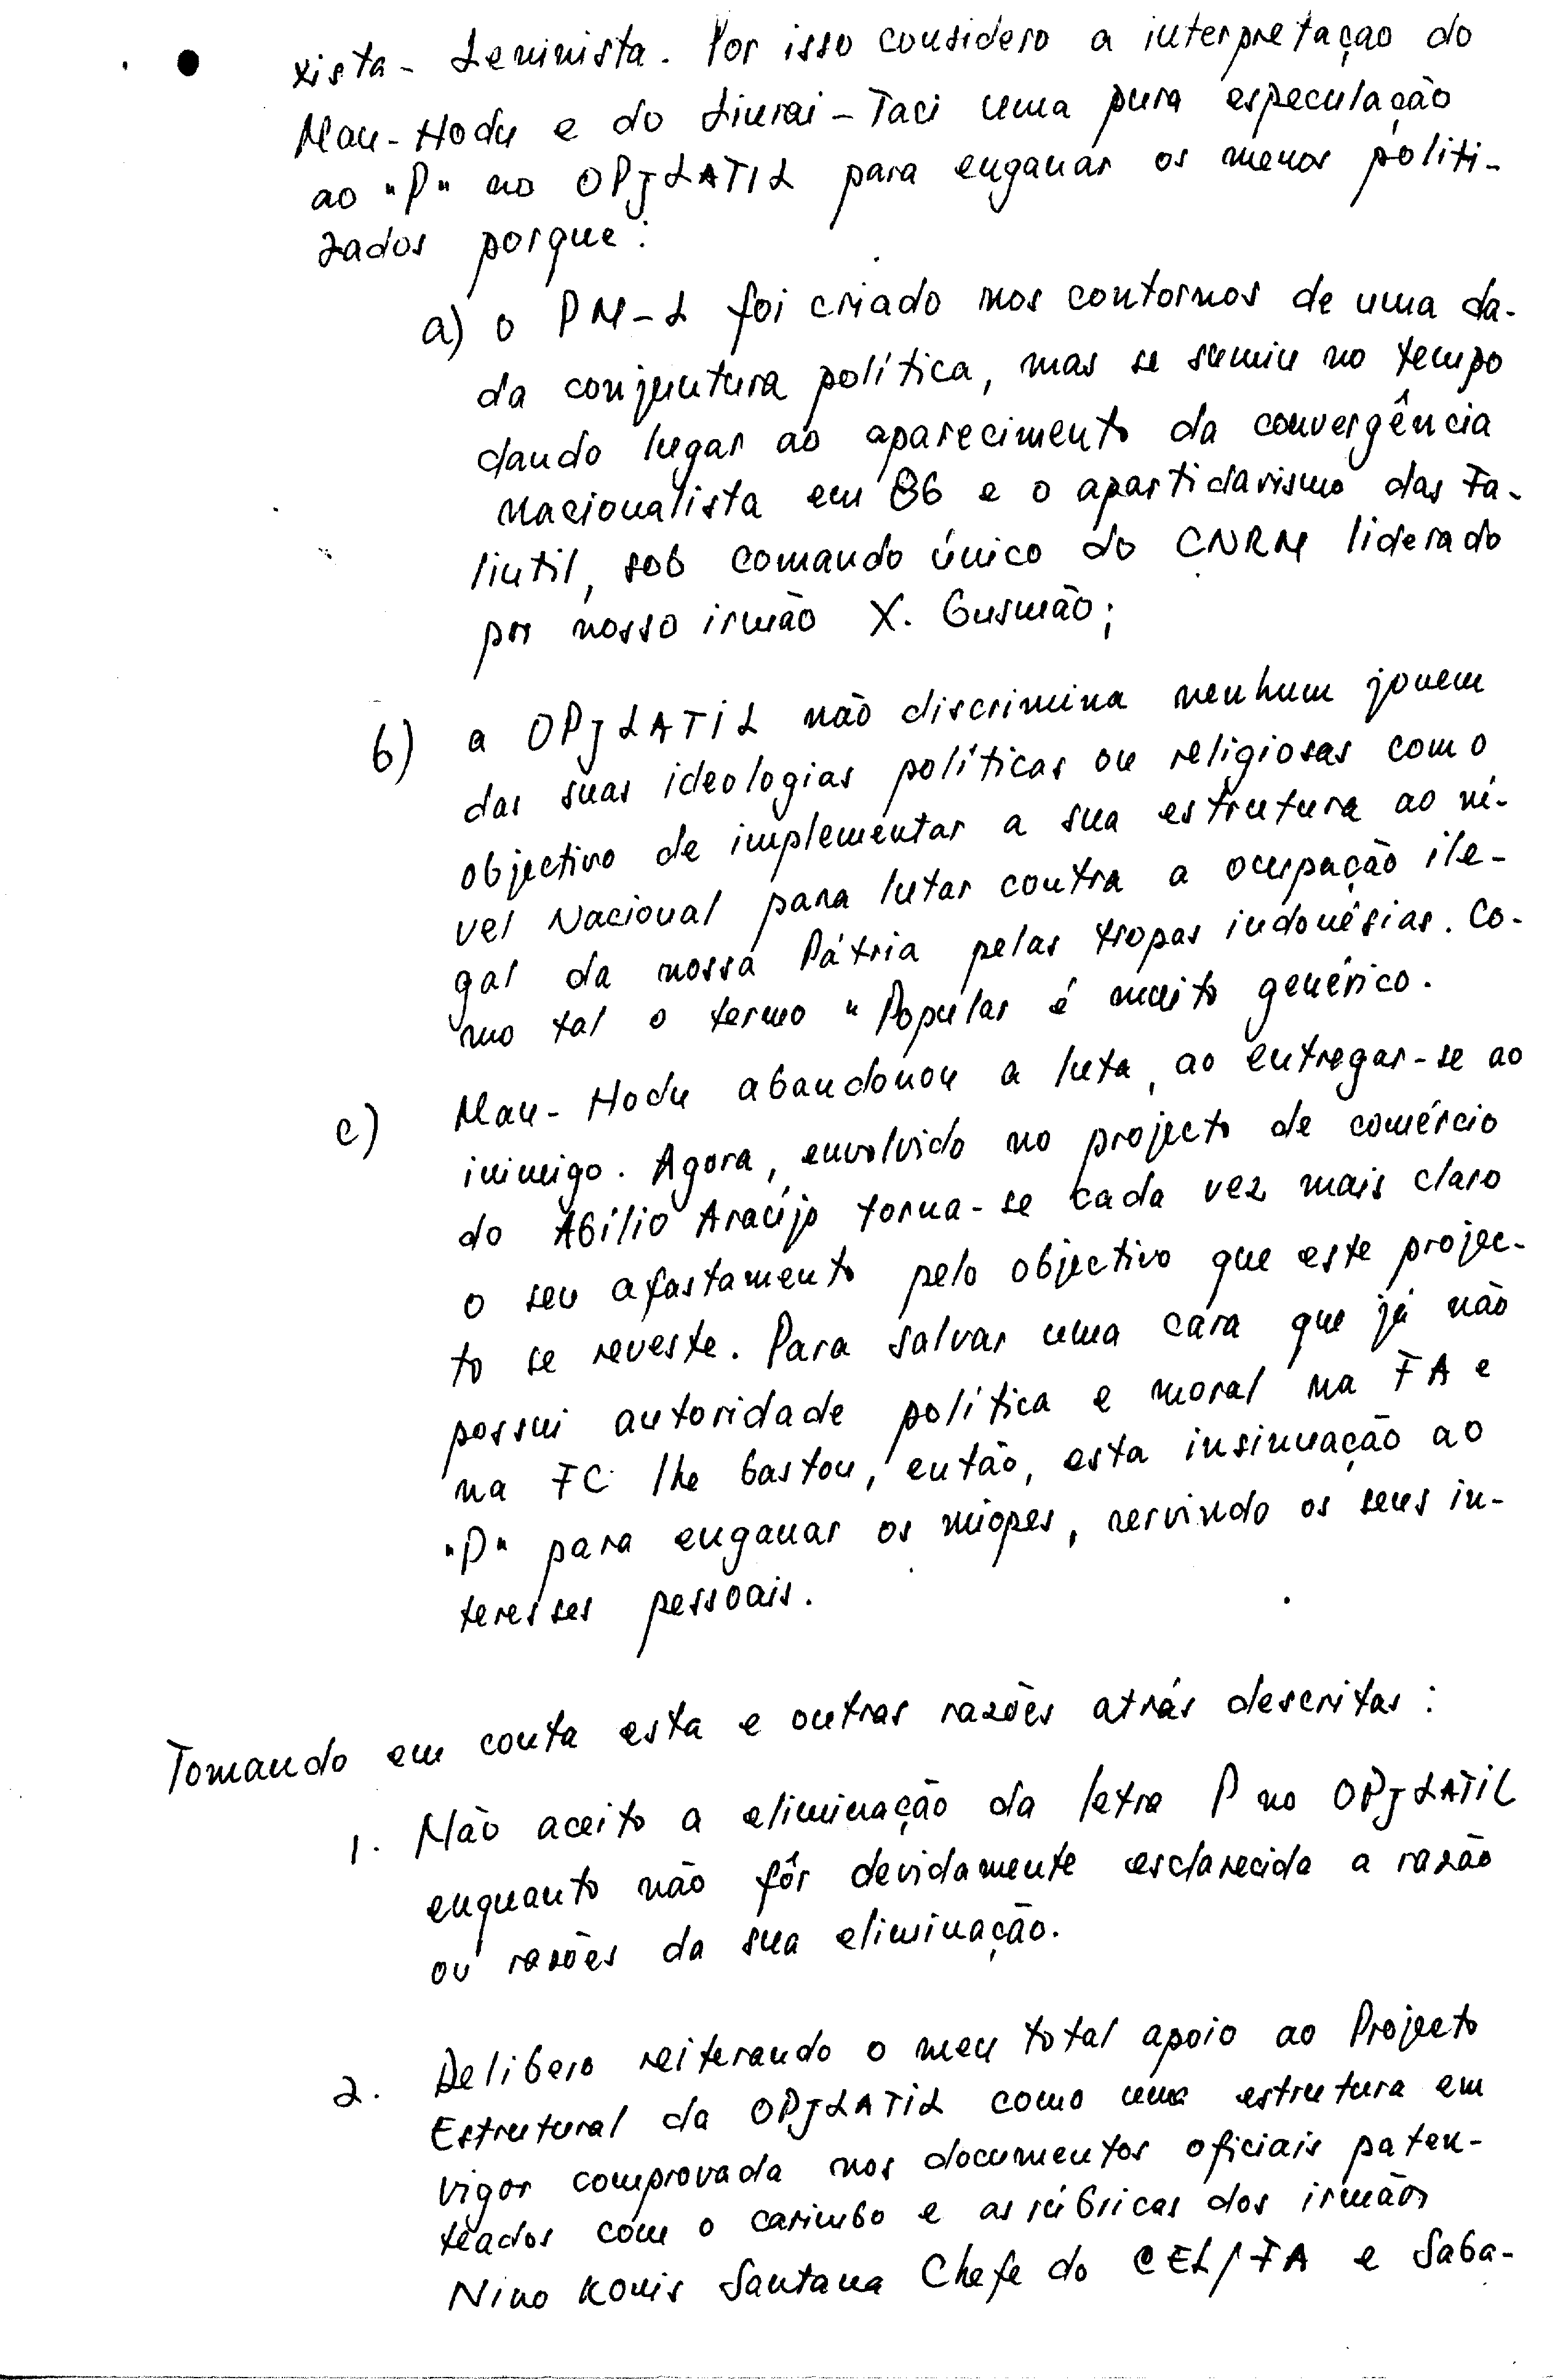 xista-Leninista. Por isso considero a interpretação do
Mau-Hodu e do Liurai-Taci uma pura especulação
ao "P" no OPJLATIL para enganar os menos politi-
zados porque:
a) o PM-L foi criado nos contornos de uma da-
da conjuntura política, mas se sumiu no tempo
dando lugar ao aparecimento da convergência
Nacionalista em 86 e o apartidarismo das Fa-
lintil, sob comando único do CNRM liderado
por nosso irmão X. Gusmão;
b) a OPJLATIL não discrimina nenhum jovem
das suas ideologias políticas ou religiosas como
objectivo de implementar a sua estrutura ao ní-
vel Nacional para lutar contra a ocupação ile-
gal da nossa Pátria pelas tropas indonésias. Co-
mo tal o termo "Popular é muito genérico.
c) Mau-Hodu abandonou a luta, ao entregar-se ao
inimigo. Agora, envolvido no projecto de comércio
do Abílio Araújo torna-se cada vez mais claro
o seu afastamento pelo objectivo que este projec-
to se reveste. Para salvar uma cara que já não
possui autoridade política e moral na FA e
na FC lhe bastou, então, esta insinuação ao
"P" para enganar os míopes, servindo os seus in-
teresses pessoais.
Tomando em conta esta e outras razões atrás descritas:
1. Não aceito a eliminação da letra P no OPJLATIL
enquanto não fôr devidamente esclarecida a razão
ou razões da sua eliminação.
2. Delibero reiterando o meu total apoio ao Projecto
Estrutural da OPJLATIL como uma estrutura em
vigor comprovada nos documentos oficiais paten-
teados com o carimbo e as rúbricas dos irmãos
Nino Konis Santana Chefe do CEL/FA e Saba-